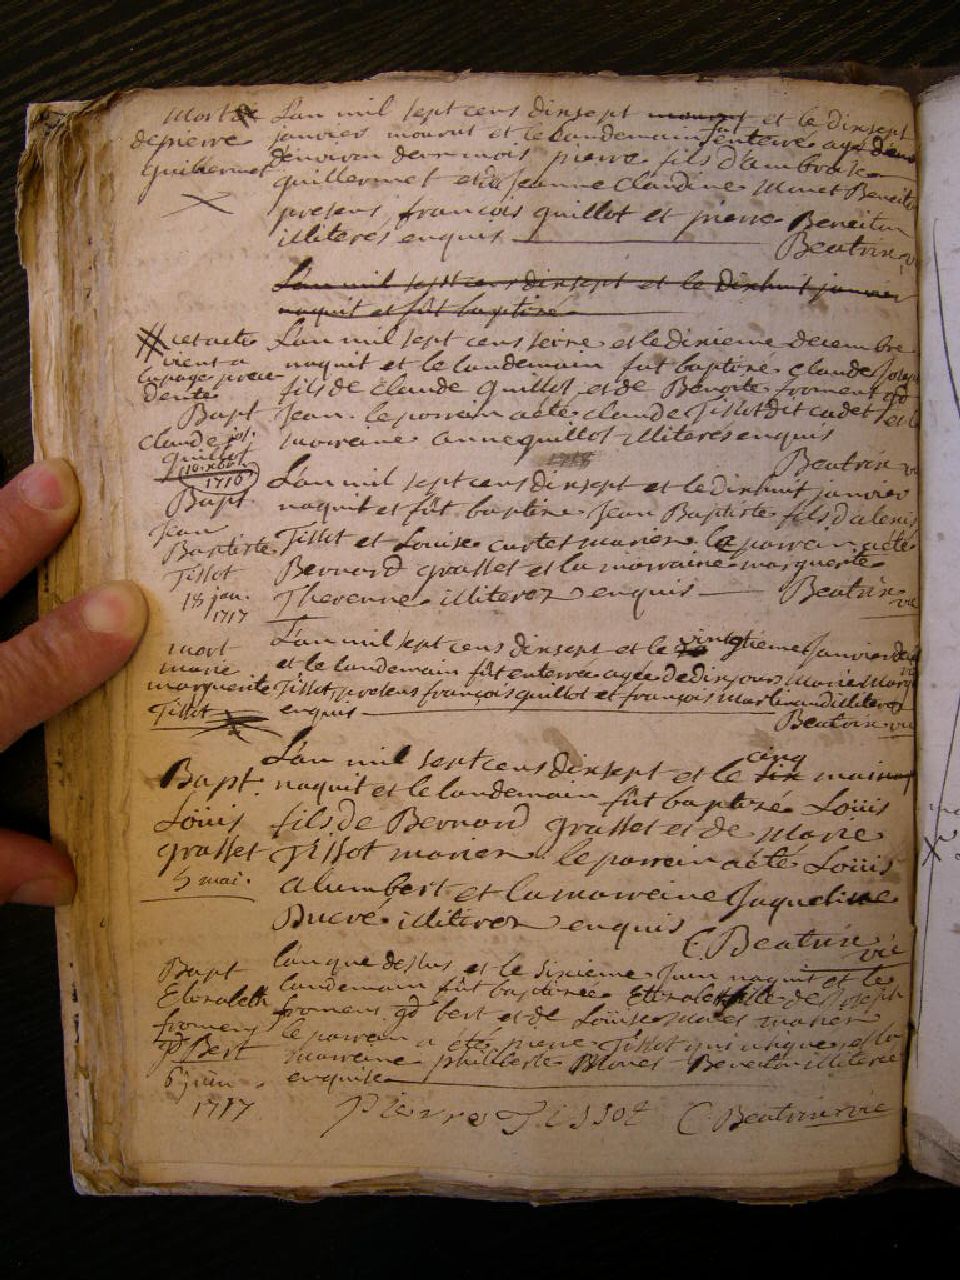 Mort de
de pierre
guillermet
L'an mil sept cens dixsept mourut et le dixsept
janvier mourut et le landemain fut enterré agé
d'environ deux mois pierre fils d'ambroise
guillermet et de Jeanne Claudine Monet
presens françois guillot et pierre Beneiton
illiterés enquis
Beatrix
L'an mil sept cens dixsept et le dixhuit janvier
naquit et fût baptisé
cet acte
vient a
la page prece
dente
Bapt
Claude jos.
guillot
10 xbre
1716
L'an mil sept cens seize et le dixieme decembre
naquit et le landemain fut baptisé Claude Joseph
fils de Claude guillot et de Benoite froment
Jean. le parrain a été claude Tissot dit cadet et la
marraine anne guillot illiterés enquis
Beatrix vic
Bapt
Jean
Baptiste
Tissot
18 jan.
1717
L'an mil sept cens dixsept et le dixhuit janvier
naquit et fût baptisé Jean Baptiste fils d'alexis
Tissot et Louise cartet mariez le parrain a été
Bernard grasset et la marraine marguerite
Thevenne illiterez enquis
Beatrix vic
mort
marie
marguerite
Tissot
L'an mil sept cens dixsept et le vingtieme janvier
et le landemain fût enterrée agée de dix jours Marie Marg
Tissot, presens françois guillot et françois Martinand illiterez
enquis
Beatrix vic
Bapt.
Loüis
grasset
5 mai.
L'an mil sept cens dixsept et le six cinq mai
naquit et le landemain fût baptisé Loüis
fils de Bernard grasset et de Marie
Tissot mariez le parrain a été Loüis
alumbert et la marraine Jaqueline
Ducré illiterez enquis
C Beatrix vic
Bapt
Elizabeth
froment
gd Bert
6 juin
1717
L'an que dessus et le sixieme Juin naquit et le
landemain fût baptisée Elizabeth fille de Joseph
froment gd bert et de Loüise Monet mariez
le parrain a été pierre Tissot qui a signé et la
marraine philiberte Monet Beneiton illiterée
enquise
Pierre Tissot
C Beatrix vic